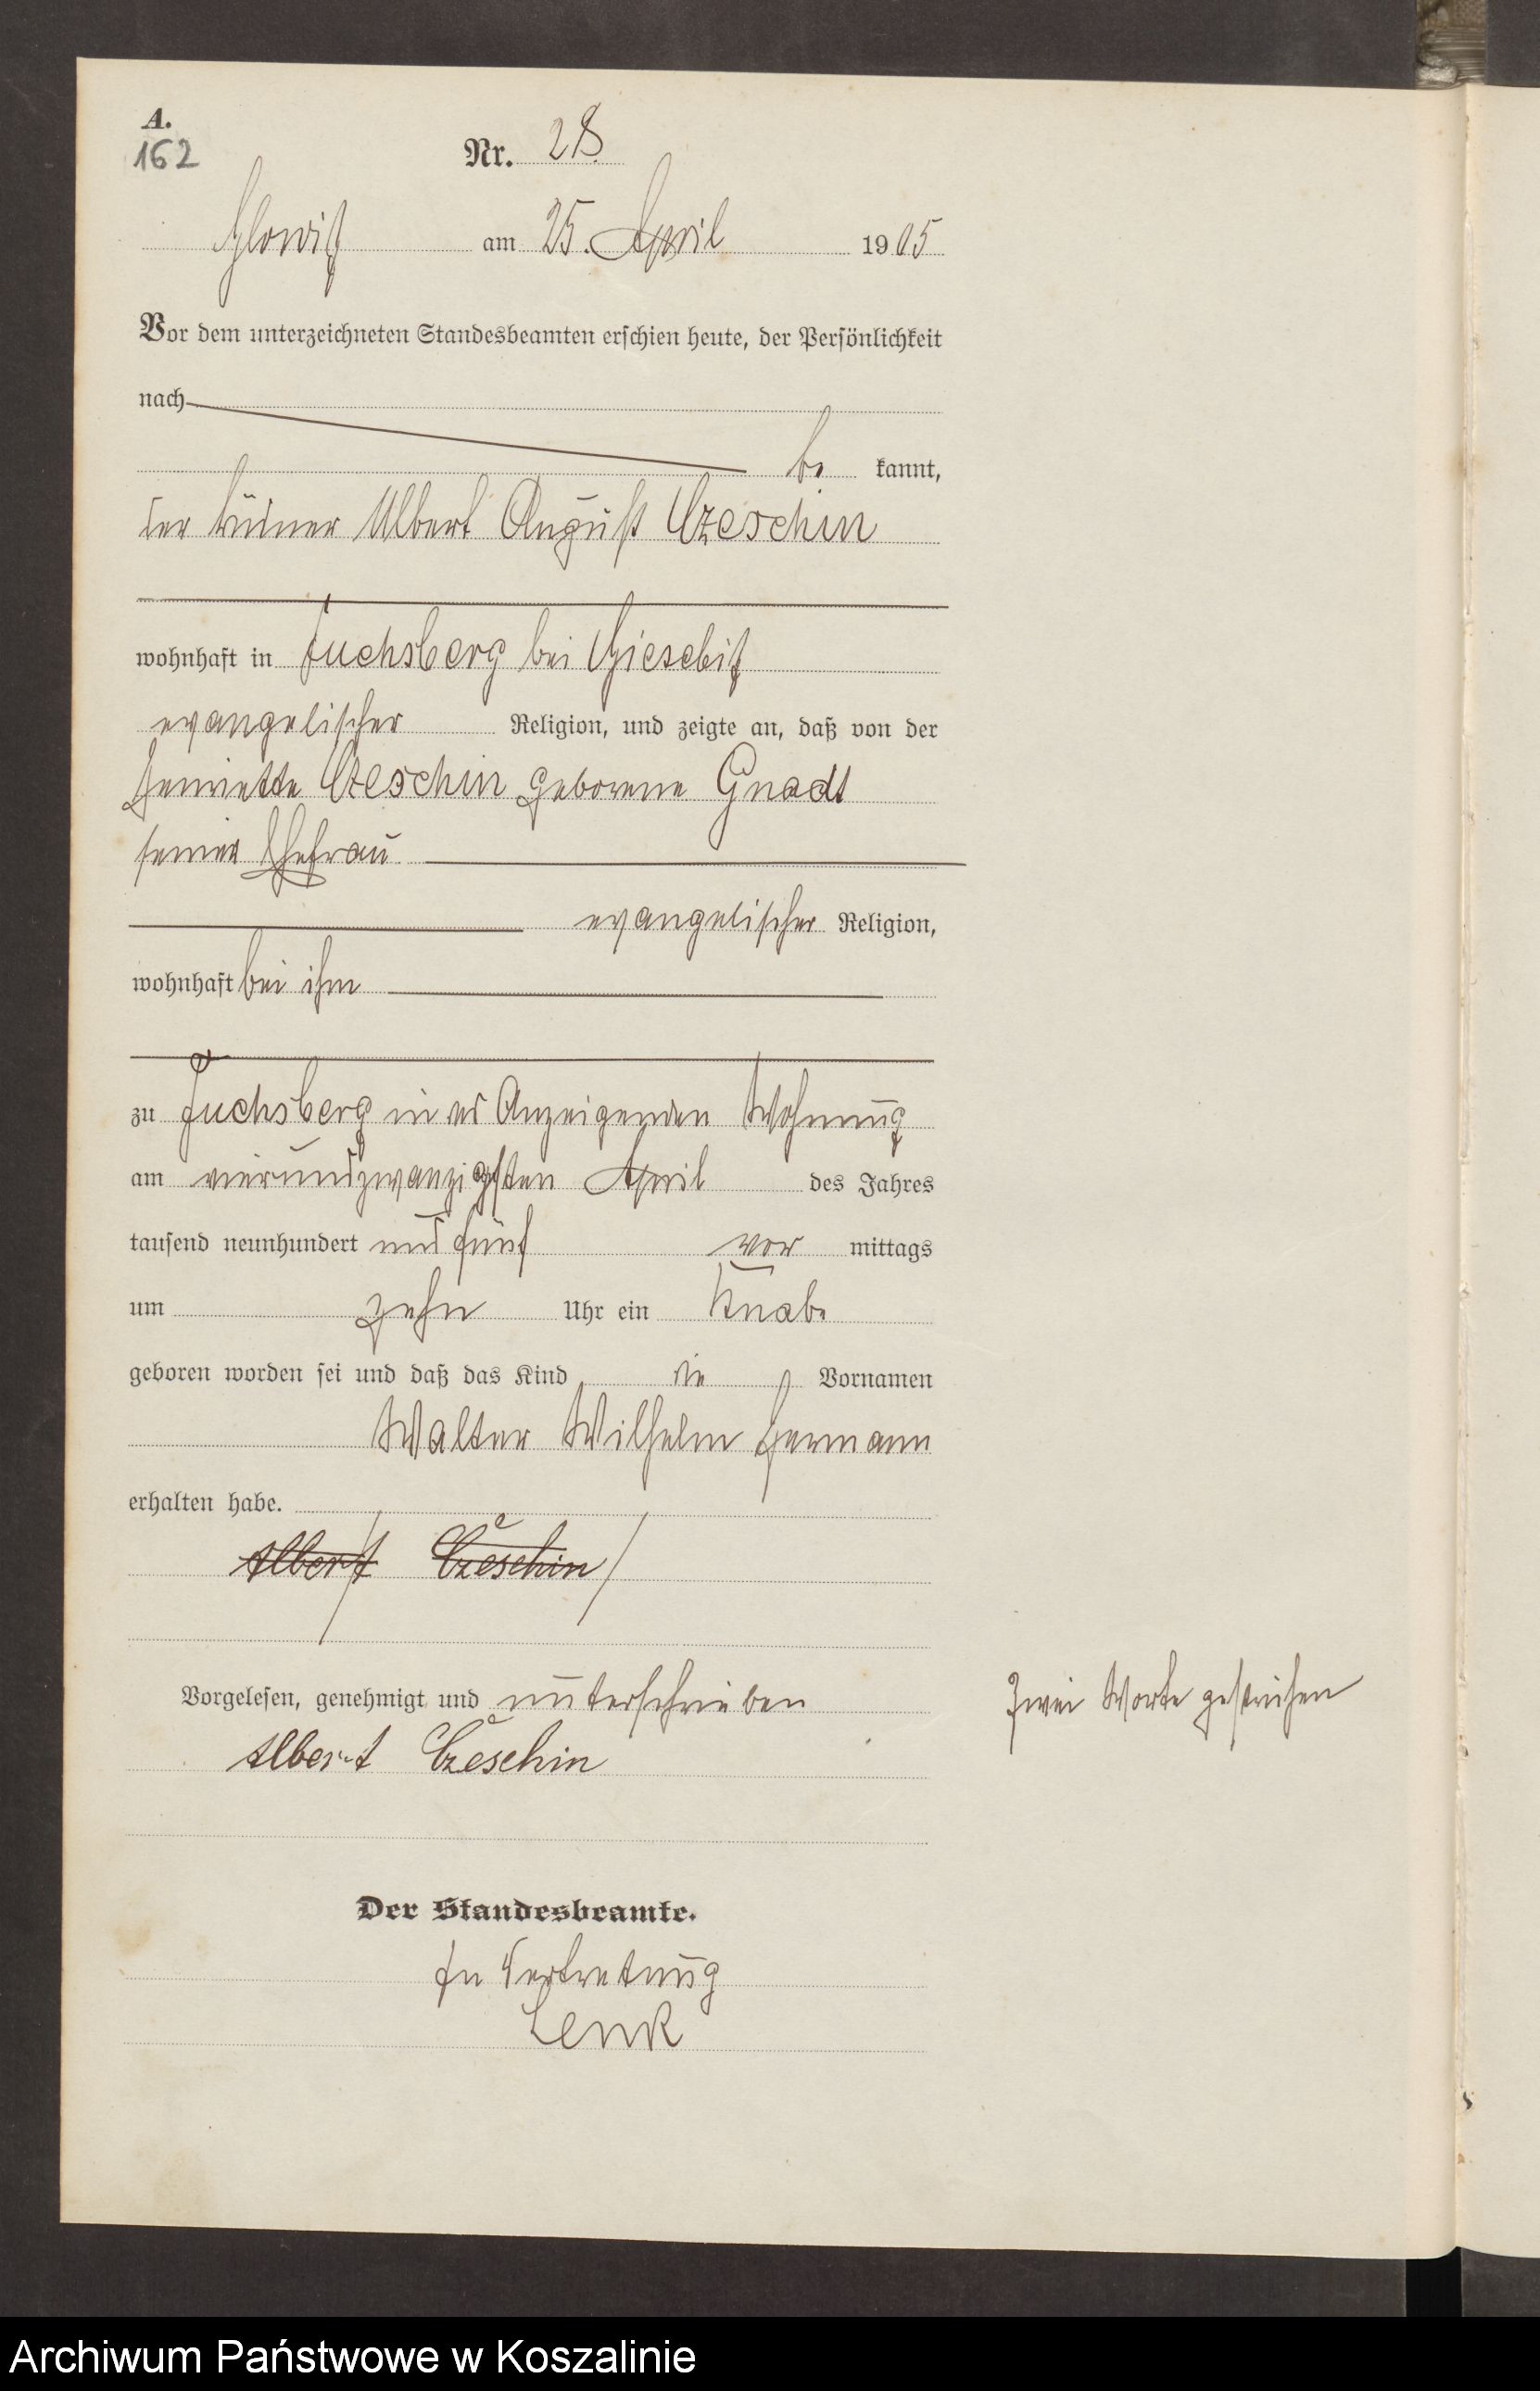 A.
162
Nr. 28.
Glowitz am 25. April 1905
Vor dem unterzeichneten Standesbeamten erschien heute, der Persönlichkeit
nach
be kannt,
der Büdner Albert August Czeschin
wohnhaft in Fuchsberg bei Giesebitz
evangelischer Religion, und zeigte an, daß von der
Henriette Czeschin geborene Gnadt
seiner Ehefrau
evangelischer Religion,
wohnhaft bei ihm
zu Fuchsberg in des Anzeigenden Wohnung
am vierundzwanzigsten April des Jahres
tausend neunhundert und fünf vor mittags
um zehn Uhr ein Knabe
geboren worden sei und daß das Kind die Vornamen
Walter Wilhelm Hermann
erhalten habe.
Albert Czeschin
Vorgelesen, genehmigt und unterschrieben
Zwei Worte gestrichen
Albert Czeschin
Der Standesbeamte.
In Vertretung
Lenk
Archiwum Państwowe w Koszalinie